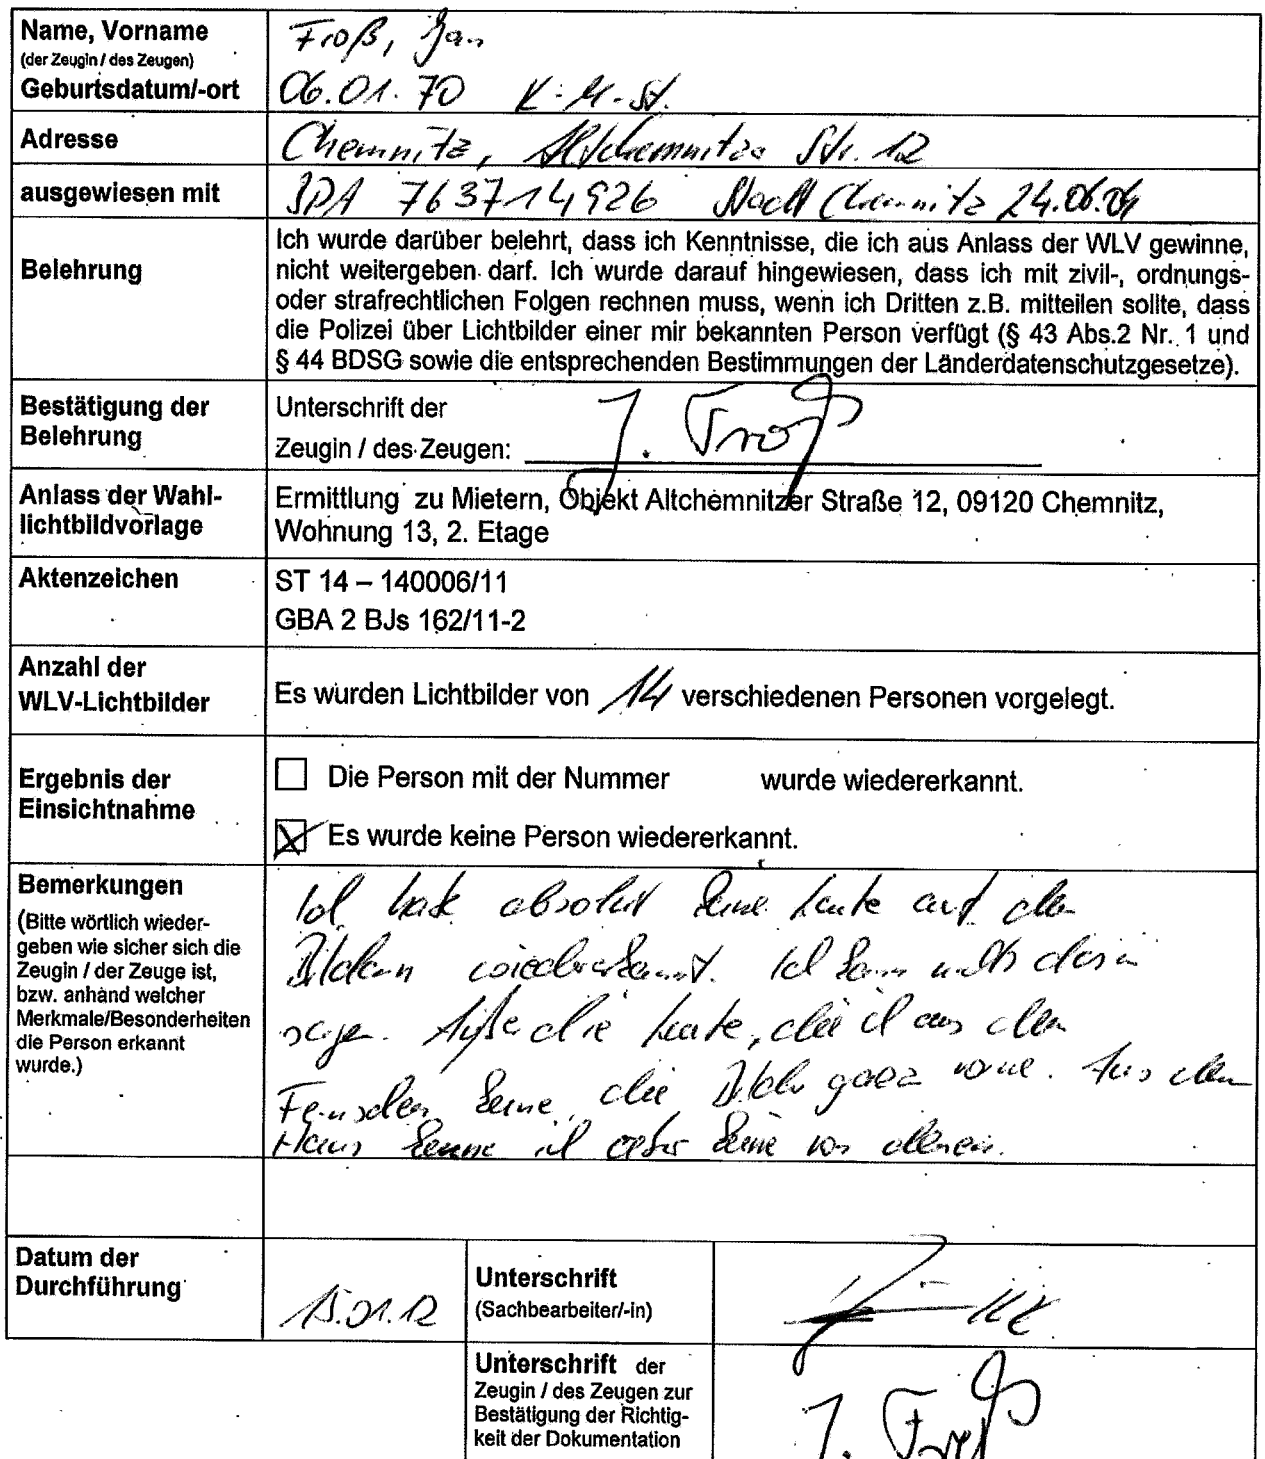 Name, Vorname
(der Zeugin / des Zeugen)
Froß, Jan
Geburtsdatum/-ort
06.01.70 K-M-St.
Adresse
Chemnitz, Altchemnitzer Str. 12
ausgewiesen mit
BPA 7637714926 Stadt Chemnitz 24.06.04
Belehrung
Ich wurde darüber belehrt, dass ich Kenntnisse, die ich aus Anlass der WLV gewinne,
nicht weitergeben darf. Ich wurde darauf hingewiesen, dass ich mit zivil-, ordnungs-
oder strafrechtlichen Folgen rechnen muss, wenn ich Dritten z.B. mitteilen sollte, dass
die Polizei über Lichtbilder einer mir bekannten Person verfügt (§ 43 Abs.2 Nr. 1 und
§ 44 BDSG sowie die entsprechenden Bestimmungen der Länderdatenschutzgesetze).
Bestätigung der
Belehrung
Unterschrift der
Zeugin / des Zeugen: J. Froß
Anlass der Wahl-
lichtbildvorlage
Ermittlung zu Mietern, Objekt Altchemnitzer Straße 12, 09120 Chemnitz,
Wohnung 13, 2. Etage
Aktenzeichen
ST 14 – 140006/11
GBA 2 BJs 162/11-2
Anzahl der
WLV-Lichtbilder
Es wurden Lichtbilder von 14 verschiedenen Personen vorgelegt.
Ergebnis der
Einsichtnahme
Die Person mit der Nummer wurde wiedererkannt.
Es wurde keine Person wiedererkannt.
Bemerkungen
(Bitte wörtlich wieder-
geben wie sicher sich die
Zeugin / der Zeuge ist,
bzw. anhand welcher
Merkmale/Besonderheiten
die Person erkannt
wurde.)
Ich habe absolut keine Leute auf den
Bildern wiedererkannt. Ich kann nichts dazu
sagen. Außer die Leute, die ich aus dem
Fernsehen kenne, die Bilder ganz vorne. Aus dem
Haus kenne ich aber keine von denen.
Datum der
Durchführung
15.01.12
Unterschrift
(Sachbearbeiter/-in)
Unterschrift der
Zeugin / des Zeugen zur
Bestätigung der Richtig-
keit der Dokumentation
J. Froß